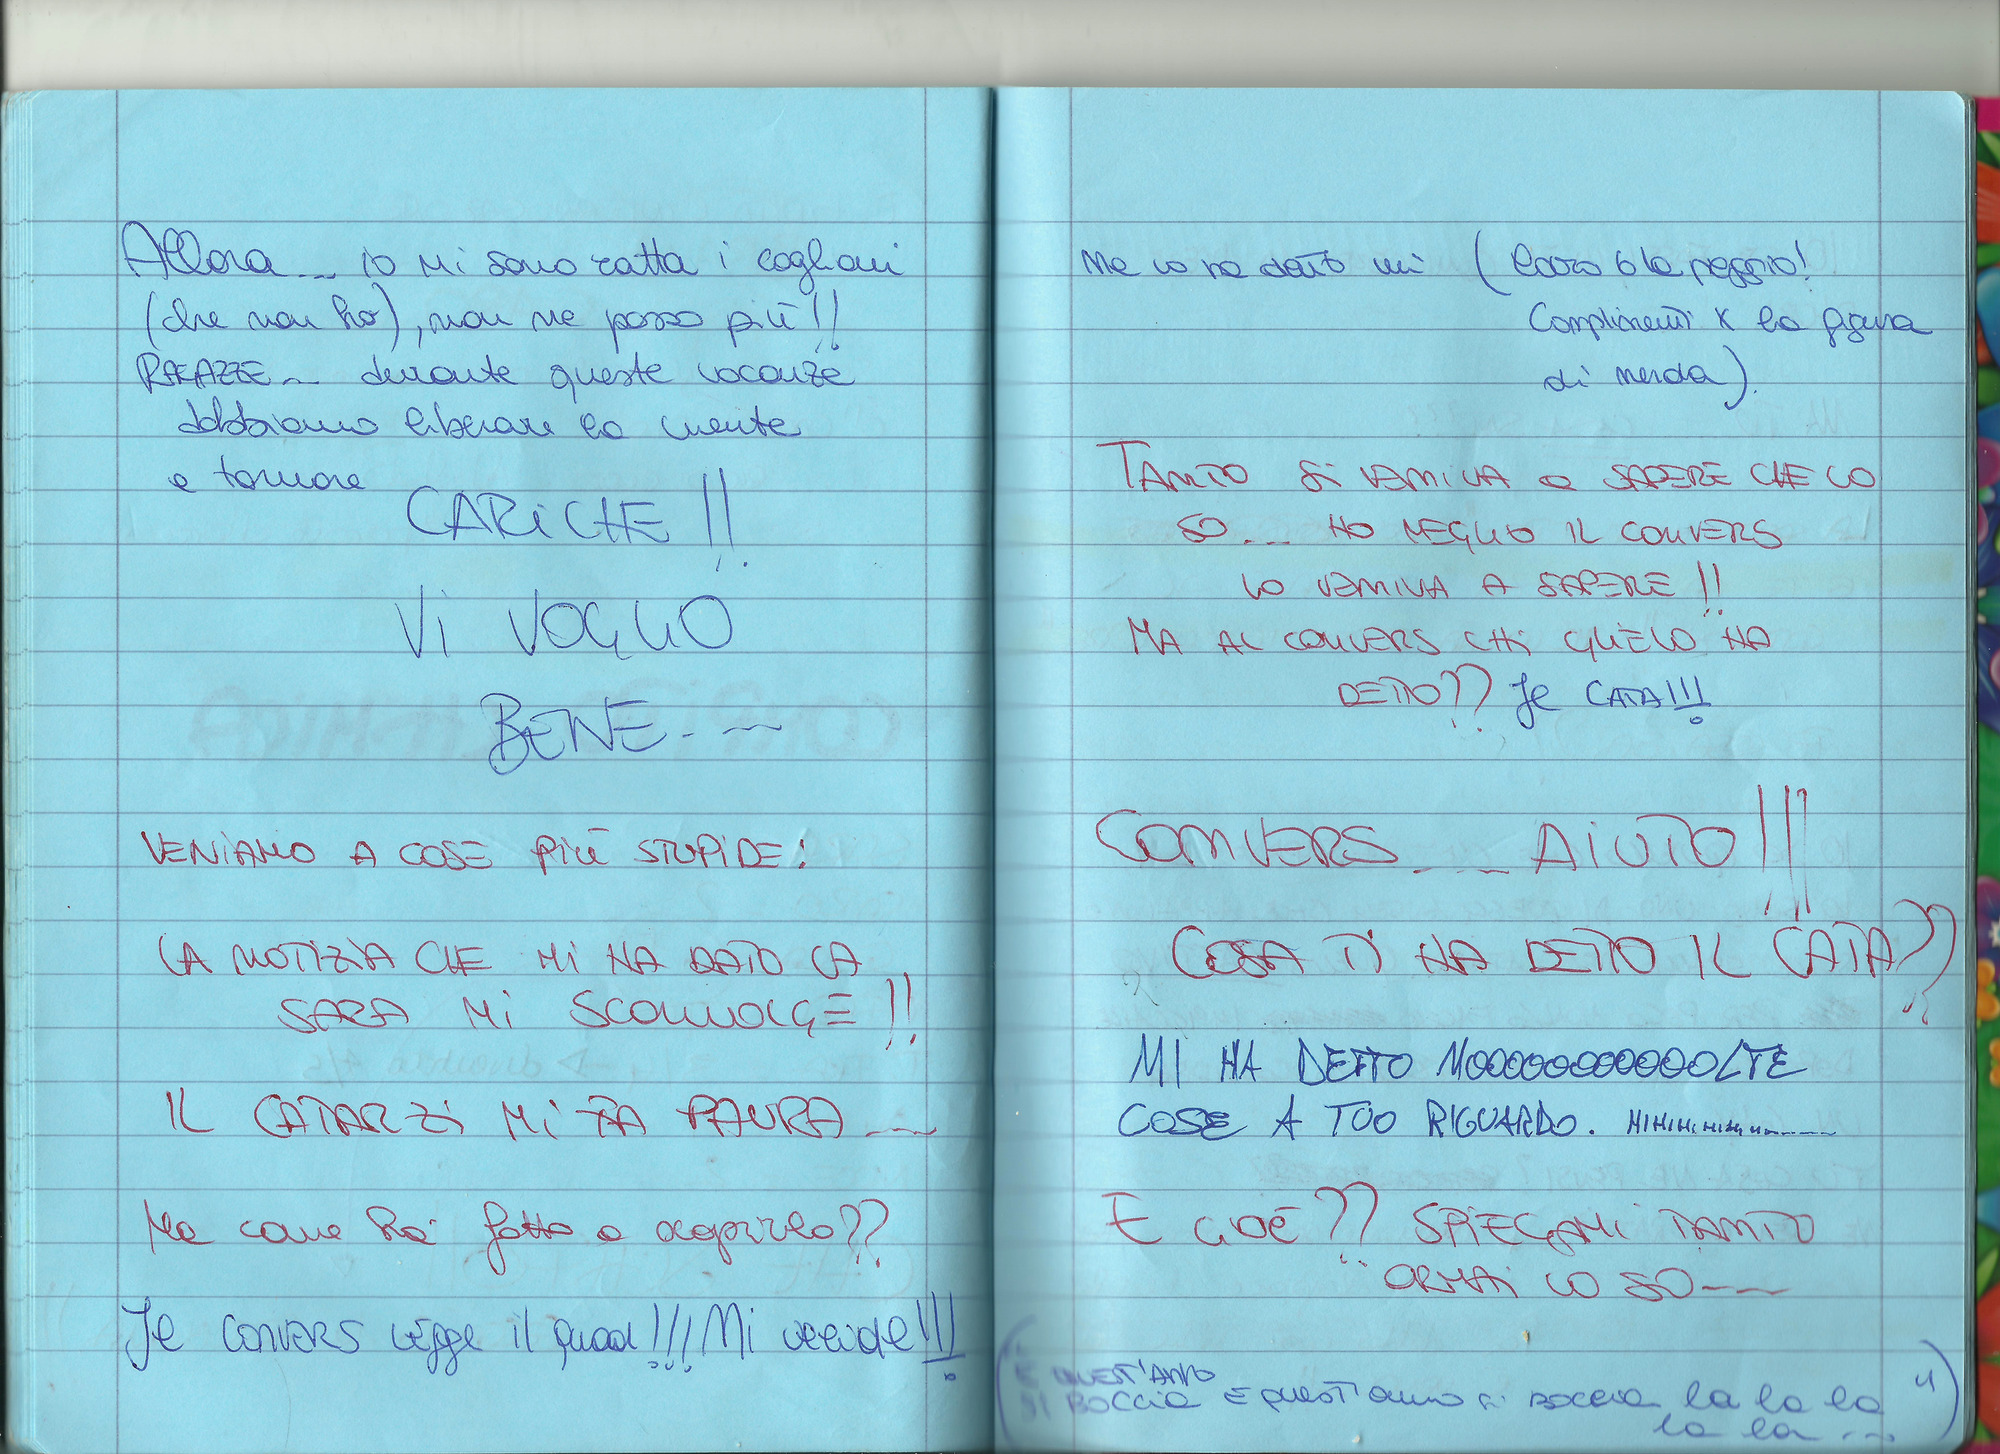 Allora... io mi sono rotta i coglioni
(che non ho), non ne posso più!!
RAGAZZE... durante queste vacanze
dobbiamo liberare la mente
e tornare
CARiCHE!!
Vi VOGLIO
BENE...
VENiAMO A COSE Più STUPiDE:
LA NOTIZIA CHE Mi HA DATO LA
SARA Mi SCONVOLGE!!
IL CATARZi Mi FA PAURA...
Ma come hai fatto a scoprirlo??
Il CONVERS legge il quad!!! Mi uccide!!!
Me lo ha dato lui (
Complimenti x la figura
di merda).
TANTO Si VENIVA a SAPERE CHE LO
SO... HO MEGLIO IL CONVERS
LO VENIVA A SAPERE!!
MA AL CONVERS CHi GLIELO HA
DETTO?? Il CATA!!!
CONVERS... AiUTO!!!
COSA Ti HA DETTO IL CATA??
MI HA DETTO MOOOOOOOOOOOOLTE
COSE A TUO RIGUARDO.
E CIOÈ?? SPIEGAMi TANTO
ORMAi LO SO...
(E QUEST'ANNO
SI BOCCIA E quest'anno si boccia la la la
la la...